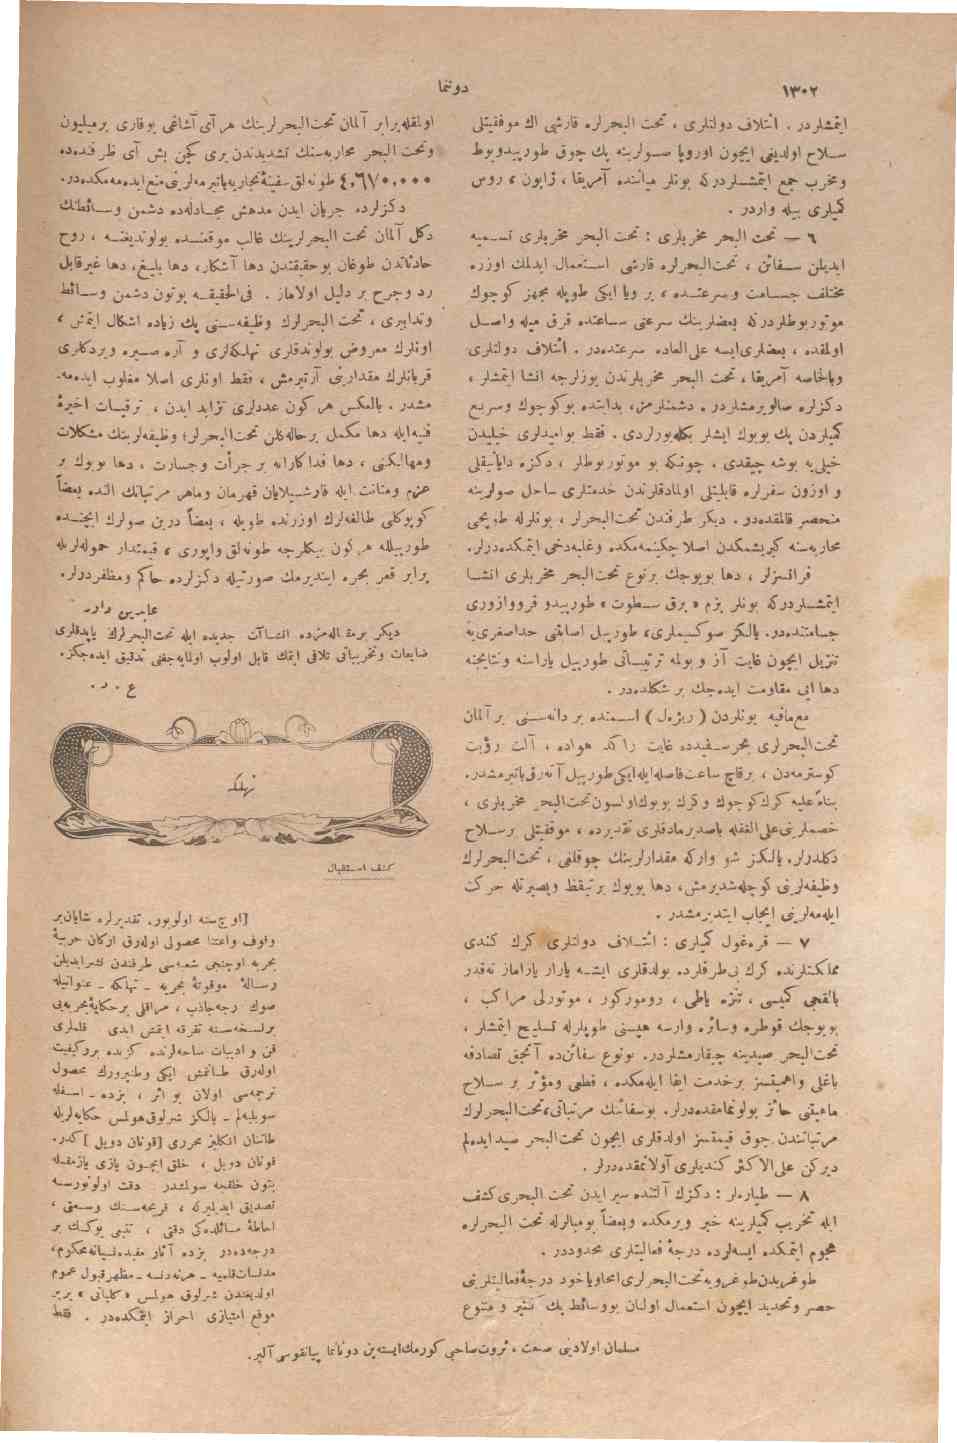 ١٣٠٢
دوننما
ايتمشلردر . ائتلاف دولتلرى ، تحت البحرلره قارشى اك موفقيتلى
سلاح اولديغى ايچون اوروپا صولرينه پك چوق طورپيدوبوط
ومخرب جمع ايتمشلردركه بونلر مياننده آمريقا ، ژاپون ، روس
كميلرى بيله واردر .
٦ — تحت البحر مخربلرى : تحت البحر مخربلرى تسميه
ايديلن سفائن ، تحت‌البحرلره قارشى استعمال ايدلمك اوزره
مختلف جسامت وسرعتده ، بر ويا ايكى طوپله مجهز كوچوك
موتوربوطلردركه بعضلرينك سرعتى ساعتده قرق ميله واصل
اولمقده ، بعضلرى‌ايسه على‌العاده سرعتده‌در . ائتلاف دولتلرى
وبالخاصه آمريقا ، تحت البحر مخربلرندن يوزلرجه انشا ايتمشلر ،
دكزلره صالويرمشلردر . دشمنلرمز، بدايتده بوكوچوك وسريع
كميلردن پك بويوك ايشلر بكله‌يورلردى . فقط بواميدلرى خيليدن
خيلى‌يه بوشه چيقدى . چونكه بو موتوربوطلر ، دكزه دايانيقلى
و اوزون سفرلره قابليتلى اولمادقلرندن خدمتلرى ساحل صولرينه
منحصر قالمقده‌در . ديكر طرفدن تحت‌البحرلر ، بونلرله طوپجى
محاربه‌سنه كيريشمكدن اصلا چكينمه‌مكده وغلبه‌دخى ايتمكده‌درلر.
فرانسزلر ، دها بويوجك برنوع تحت‌البحر مخربلرى انشا
ايتمشلردركه بونلر بزم « برق سطوت » طورپيدو قرووازورى
جسامتنده‌در. يالكز صوكسيملرى، طورپيل اصابتى حداصغرى‌يه
تنزيل ايچون غايت آز و بولمه ترتيباتى طورپيل ياراسنه ونتايجنه
دها ايى مقاومت ايده‌جك بر شكلده‌در .
مع‌مافيه بونلردن ( ريژه‌ل ) اسمنده بر دانه‌سنى بر آلمان
تحت‌البحرلرى بحرسفيدده غايت راكد هواده ، آلت رؤيت
كوسترمه‌دن ، برقاچ ساعت‌فاصله‌ايله‌ايكى‌طورپيل آته‌رق‌باتيرمشدر.
بناءً عليه كرك‌كوچوك وكرك بويوك‌اولسون‌تحت‌البحر مخربلرى ،
خصملرينى‌على‌الغفله باصديرمادقلرى تقديرده ، موفقيتلى برسلاح
دكلدرلر. يالكز شو واركه مقدارلرينك چوقلغى ، تحت‌البحرلرك
وظيفه‌لرينى كوچله‌شديرمش، دها بويوك برتيقظ وبصيرتله حركت
ايله‌مه‌لرينى ايجاب ايتديرمشدر .
٧ — قره‌غول كميلرى : ائتلاف دولتلرى كرك كندى
مملكتلرنده كرك بى‌طرفلرده. بولدقلرى ايشه يارار ياراماز نه‌قدر
بالقجى كميسى ، تنزه ياطى ، روموركور ، موتورلى مراكب ،
بويوجك قوطره وسائره وارسه هپسنى طوپلرله تسليح ايتمشلر ،
تحت‌البحر صيدينه چيقارمشلردر. بونوع سفائن‌ده آنجق تصادفه
باغلى واهميتسز برخدمت ايفا ايله‌مكده ، قطعى ومؤثر بر سلاح
ماهيتنى حائز بولونمامقده‌درلر. بوسفائنك مرتباتى،تحت‌البحرلرك
مرتباتندن چوق قيمتسز اولدقلرى ايچون تحت‌البحر صيد ايده‌لم
ديركن على‌الاكثر كنديلرى آولانمقده‌درلر .
٨ — طياره‌لر : دكزك آلتنده سير ايدن تحت البحرى كشف
ايله تخريب كميلرينه خبر ويرمكده وبعضاً بومبالرله تحت البحرلره
هجوم ايتمكده ايسه‌لرده درجۀ فعاليتلرى محدوددر .
طوغريدن‌طوغرويه‌تحت‌البحرلرى‌امحاوياخود درجۀفعاليتلرينى
حصر وتحديد ايچون استعمال اولنان بووسائط پك كثير و متنوع
اولمقله‌برابر آلمان تحت‌البحرلرينك هر آى آشاغى يوقارى برميليون
وتحت البحر محاربه‌سنك تشديدندن برى كچن بش آى ظرفنده‌ده
٤,٦٧٠,٠٠٠ طونه‌لق‌سفينۀتجاريه‌باتيرمه‌لرينى‌منع‌ايده‌مه‌مكده‌در.
دكزلرده جريان ايدن مدهش مجادله‌ده دشمن وسائطنك
دكل آلمان تحت البحرلرينك غالب موقعنده بولونديغنه ، روح
حادثاتدن طوغان بوحقيقتدن دها آشكار، دها بليغ، دها غيرقابل
رد وجرح بر دليل اولاماز . فى‌الحقيقه بوتون دشمن وسائط
وتدابيرى ، تحت البحرلرك وظيفه‌سنى پك زياده اشكال ايتمش ،
اونلرك معروض بولوندقلرى تهلكه‌لرى و آره صيره ويردكلرى
قربانلرك مقدارينى آرتيرمش ، فقط اونلرى اصلا مغلوب ايده‌مه‌
مشدر. بالعكس هر كون عددلرى تزايد ايدن ، ترقيات اخيرۀ
فنيه‌ايله دها مكمل برحاله‌كلن تحت‌البحرلر؛ وظيفه‌لرينك مشكلات
ومهالكنى ، دها فداكارانه بر جرأت وجسارت ، دها بويوك بر
عزم ومتانت ايله قارشيلايان قهرمان وماهر مرتباتك النده بعضاً
كوپوكلى طالغه‌لرك اوزرنده طوپله ، بعضاً درين صولرك ايچنده
طورپيلله هر كون بيكلرجه طونه‌لق واپورى ، قيمتدار حموله‌لريله
برابر قعر بحره اينديرمك صورتيله دكزلرده حاكم ومظفردرلر.
عابدين داور
ديكر برمقاله‌مزده انشاآت جديده ايله تحت‌البحرلرك ياپدقلرى
ضايعات وتخريباتى تلافى ايتمك قابل اولوب اولمايه‌جغنى تدقيق ايده‌جكز.
ع . د .
تهلكه
كشف استقبال
[اوچ‌سنه اولويور، تقديرلره شايان‌بر
وقوف واعتنا محصولى اوله‌رق اركان حربيۀ
بحريه اوچنجى شعبه‌سى طرفندن نشرايديلن
رسالۀ موقوتۀ بحريه ـ تهلكه ـ عنوانيله
صوك رجه‌جاذب ، مراقلى برحكايۀبحريه‌يى
برنسخه‌سنه تفرقه ايتمش ايدى . قلملرى
فن و ادبيات ساحه‌لرنده كزيده بروكيفيت
اوله‌رق طانتمش ايكى وطنپرورك محصول
ترجمه‌سى اولان بو اثر ، بزده ـ اسفله
سويليه‌لم ـ يالكز شرلوق‌هولمس حكايه‌لريله
طانينان انكليز محررى [قونان دويل ]كدر.
قونان دويل ، خلق ايچون يازى يازمقله
بتون خلقجه سولمشدر . دقت اولونورسه
تصديق ايديليركه ، قريحه‌سنك وسعتى ،
احاطۀ مسائلده‌كى دقتى ، تتبعى يوكسك بر
درجه‌ده‌در بزده آثار مفيده‌نسيانه‌محكوم،
مدلسات‌قلميه ـ هرنه‌دنسه ـ مظهرقبول عموم
اولديغندن شرلوق هولمس «كلياتى » برير
موقع امتيازى احراز ايتمكده‌در . فقط
مسلمان اولادينى صحت ، ثروت‌صاحبى كورمك‌ايسته‌ين دوننما پيانقوسى آلير.